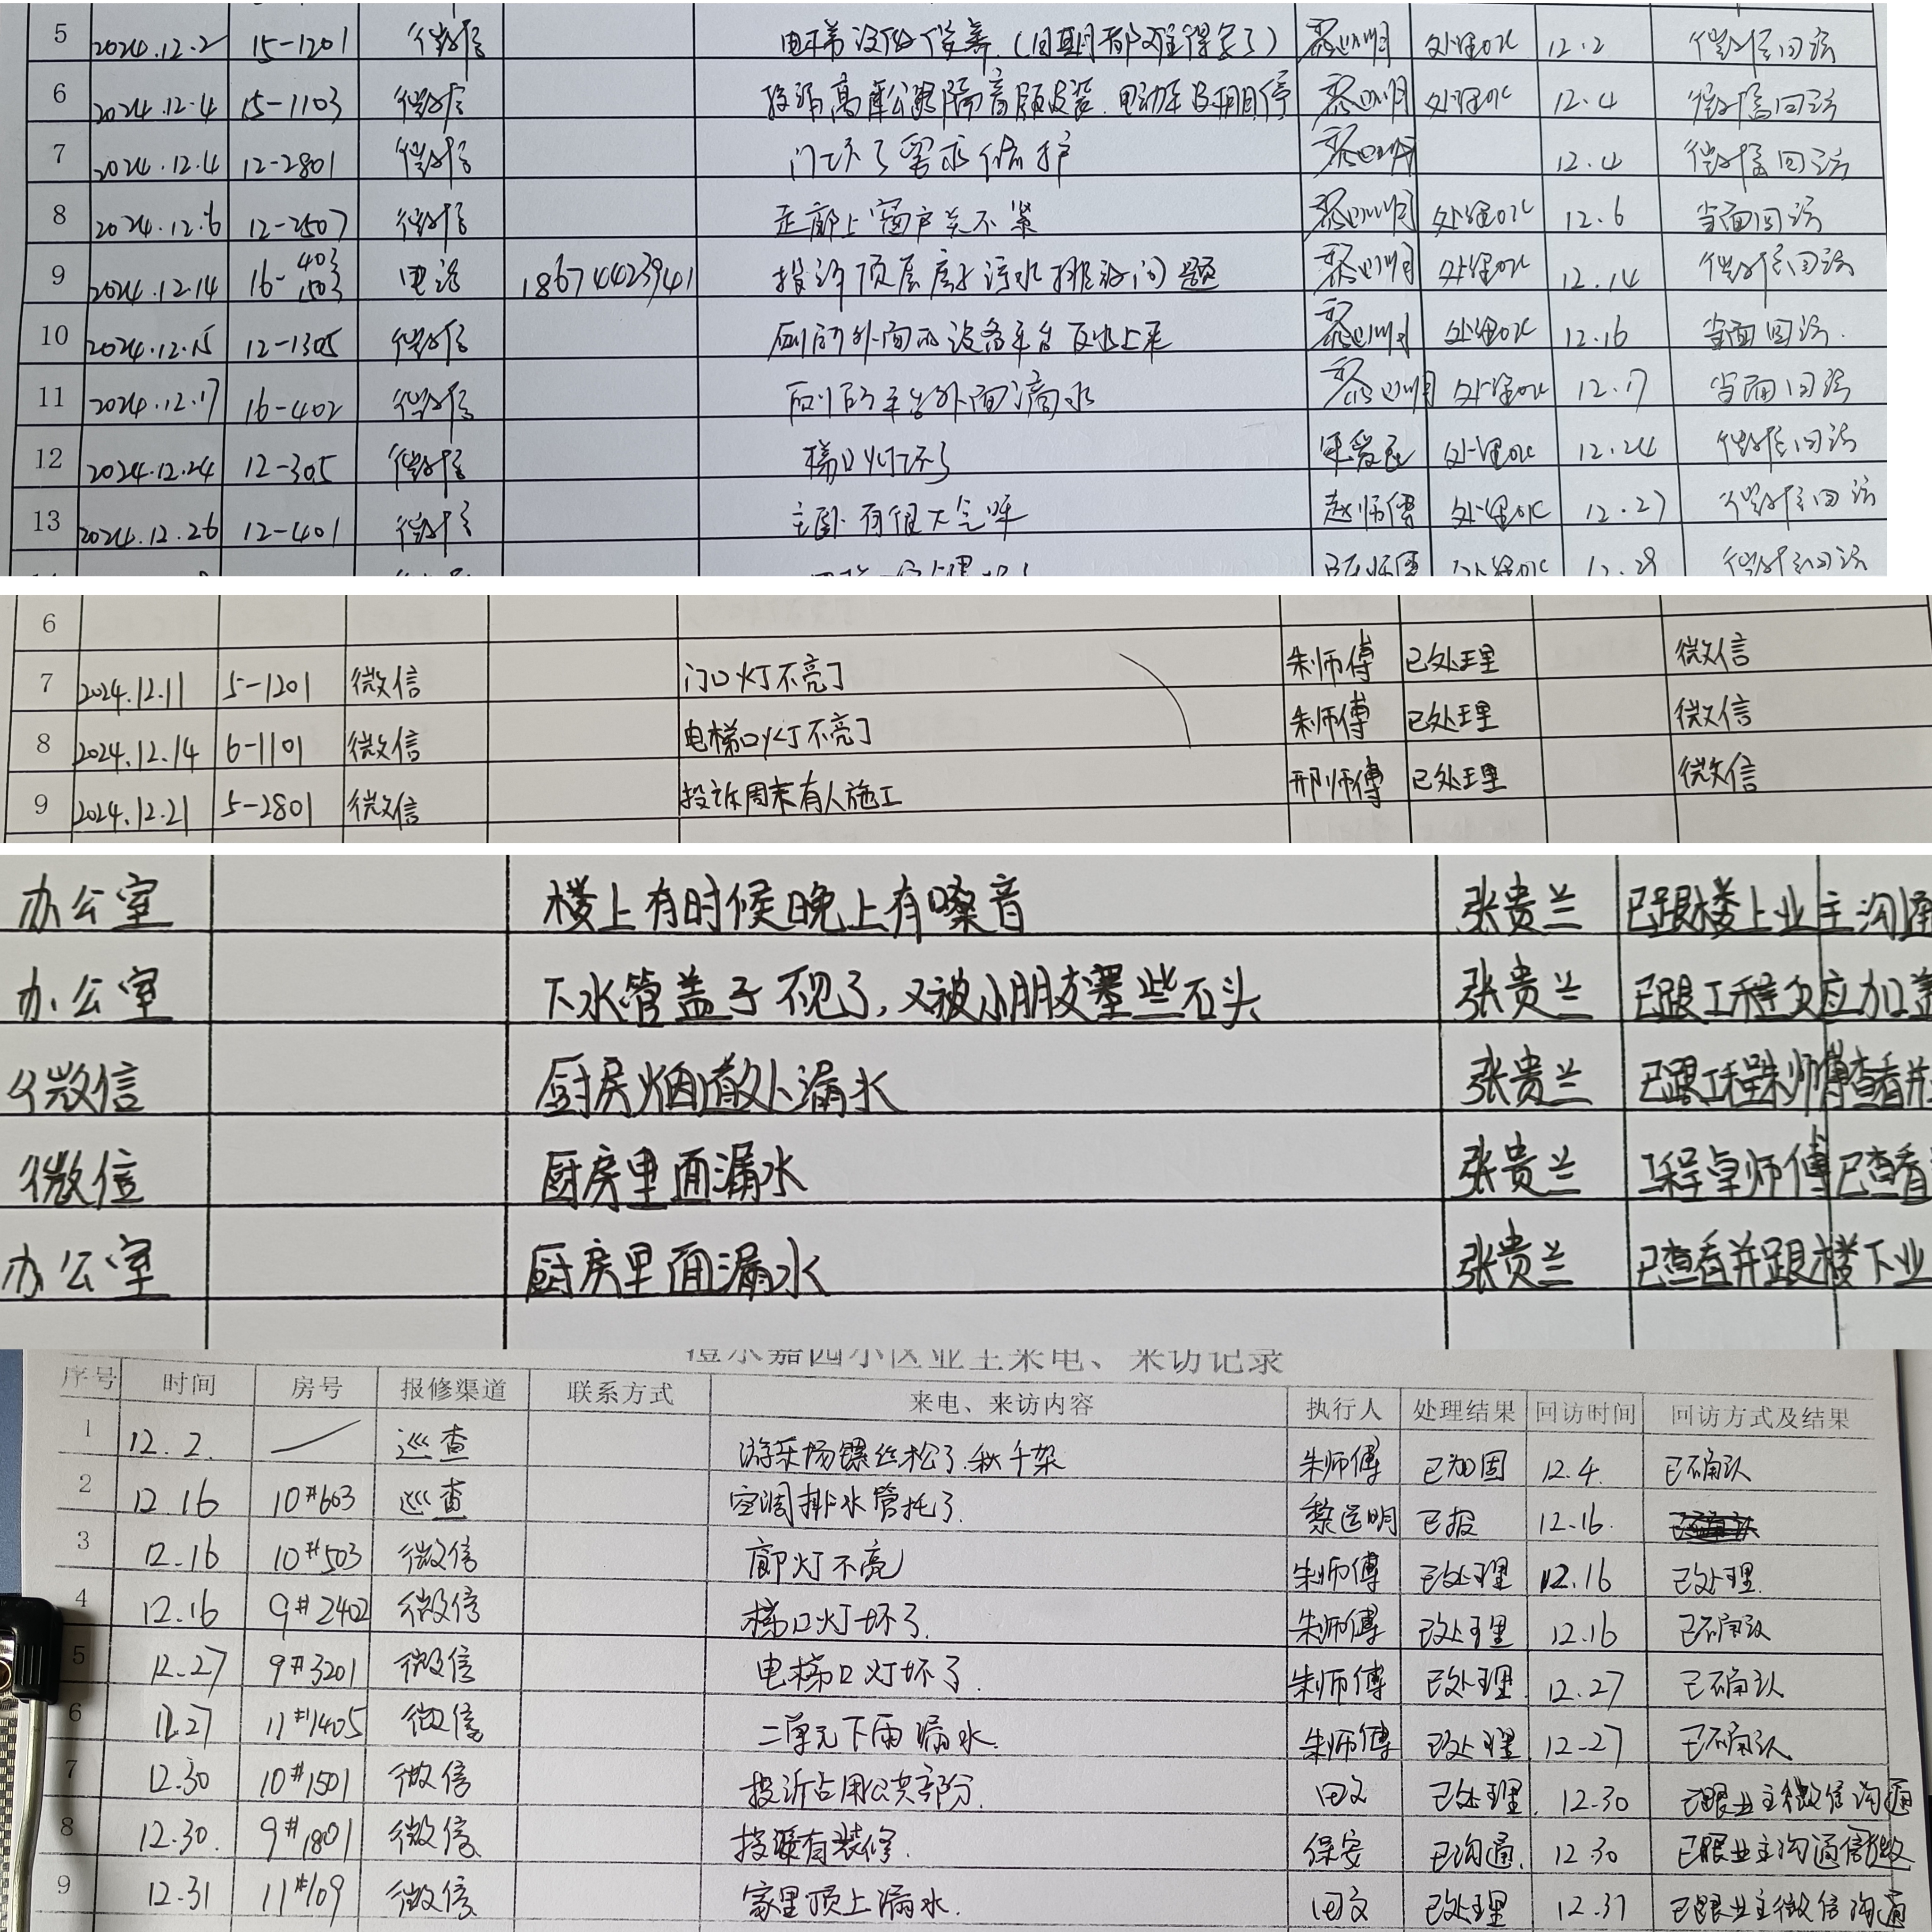 5 2024.12.2 15-1201 微信 电梯没做保养.(日期都难得写了) 黎明 处理OK 12.2 微信回访
6 2024.12.4 15-1103 微信 投诉高架公路隔音板安装.电动车 停 黎明 处理OK 12.4 微信回访
7 2024.12.4 12-2801 微信 门坏了需求 护 黎明 12.4 微信回访
8 2024.12.6 12-2507 微信 走廊上窗户关不紧 黎明 处理OK 12.6 当面回访
9 2024.12.14 16-403 1503 电话 18674423941 投诉顶层 污水排放问题 黎明 处理OK 12.14 微信回访
10 2024.12.15 12-1305 微信 厨房外面的设备平台反水上来 黎明 处理OK 12.16 当面回访.
11 2024.12.17 16-402 微信 厨房平台外面滴水 黎明 处理OK 12.17 当面回访
12 2024.12.24 12-305 微信 梯口灯坏了 处理OK 12.24 微信回访
13 2024.12.26 12-401 微信 主卧有很大气味 赵师傅 处理OK 12.27 微信回访
处理OK 12.29 微信回访
6
7 2024.12.11 5-1201 微信 门口灯不亮了 朱师傅 已处理 微信
8 2024.12.14 6-1101 微信 电梯口灯不亮了 朱师傅 已处理 微信
9 2024.12.21 5-2801 微信 投诉周末有人施工 邢师傅 已处理 微信
办公室 楼上有时候晚上有嗓音 张贵兰 已跟楼上业主沟通
办公室 下水管盖子不见了,又被小朋友塞些石头 张贵兰 已跟工程反应加盖
微信 厨房烟道散处漏水 张贵兰 已跟工程朱师傅查看并
微信 厨房里面漏水 张贵兰 工程卓师傅已查看
办公室 厨房里面漏水 张贵兰 已查看并跟楼下业
澧水嘉园小区业主来电、来访记录
序号 时间 房号 报修渠道 联系方式 来电、来访内容 执行人 处理结果 回访时间 回访方式及结果
1 12.2. 巡查 游乐场镙丝松了.秋千架 朱师傅 已加固 12.4. 已确认
2 12.16 10#603 巡查 空调排水管托了. 黎运明 已报 12.16.
3 12.16 10#503 微信 廊灯不亮 朱师傅 已处理 12.16 已处理.
4 12.16 9#2402 微信 梯口灯坏了. 朱师傅 已处理 12.16 已确认
5 12.27 9#3201 微信 电梯口灯坏了. 朱师傅 已处理 12.27 已确认
6 12.27 11#1405 微信 二单元下雨漏水. 朱师傅 已处理 12.27 已确认
7 12.30 10#1501 微信 投诉占用公共部分. 田文 已处理. 12.30 已跟业主微信沟通
8 12.30. 9#1801 微信 投诉有装修. 保安 已沟通. 12.30 已跟业主沟通
9 12.31 11#109 微信 家里顶上漏水. 田文 已处理 12.31 已跟业主微信沟通